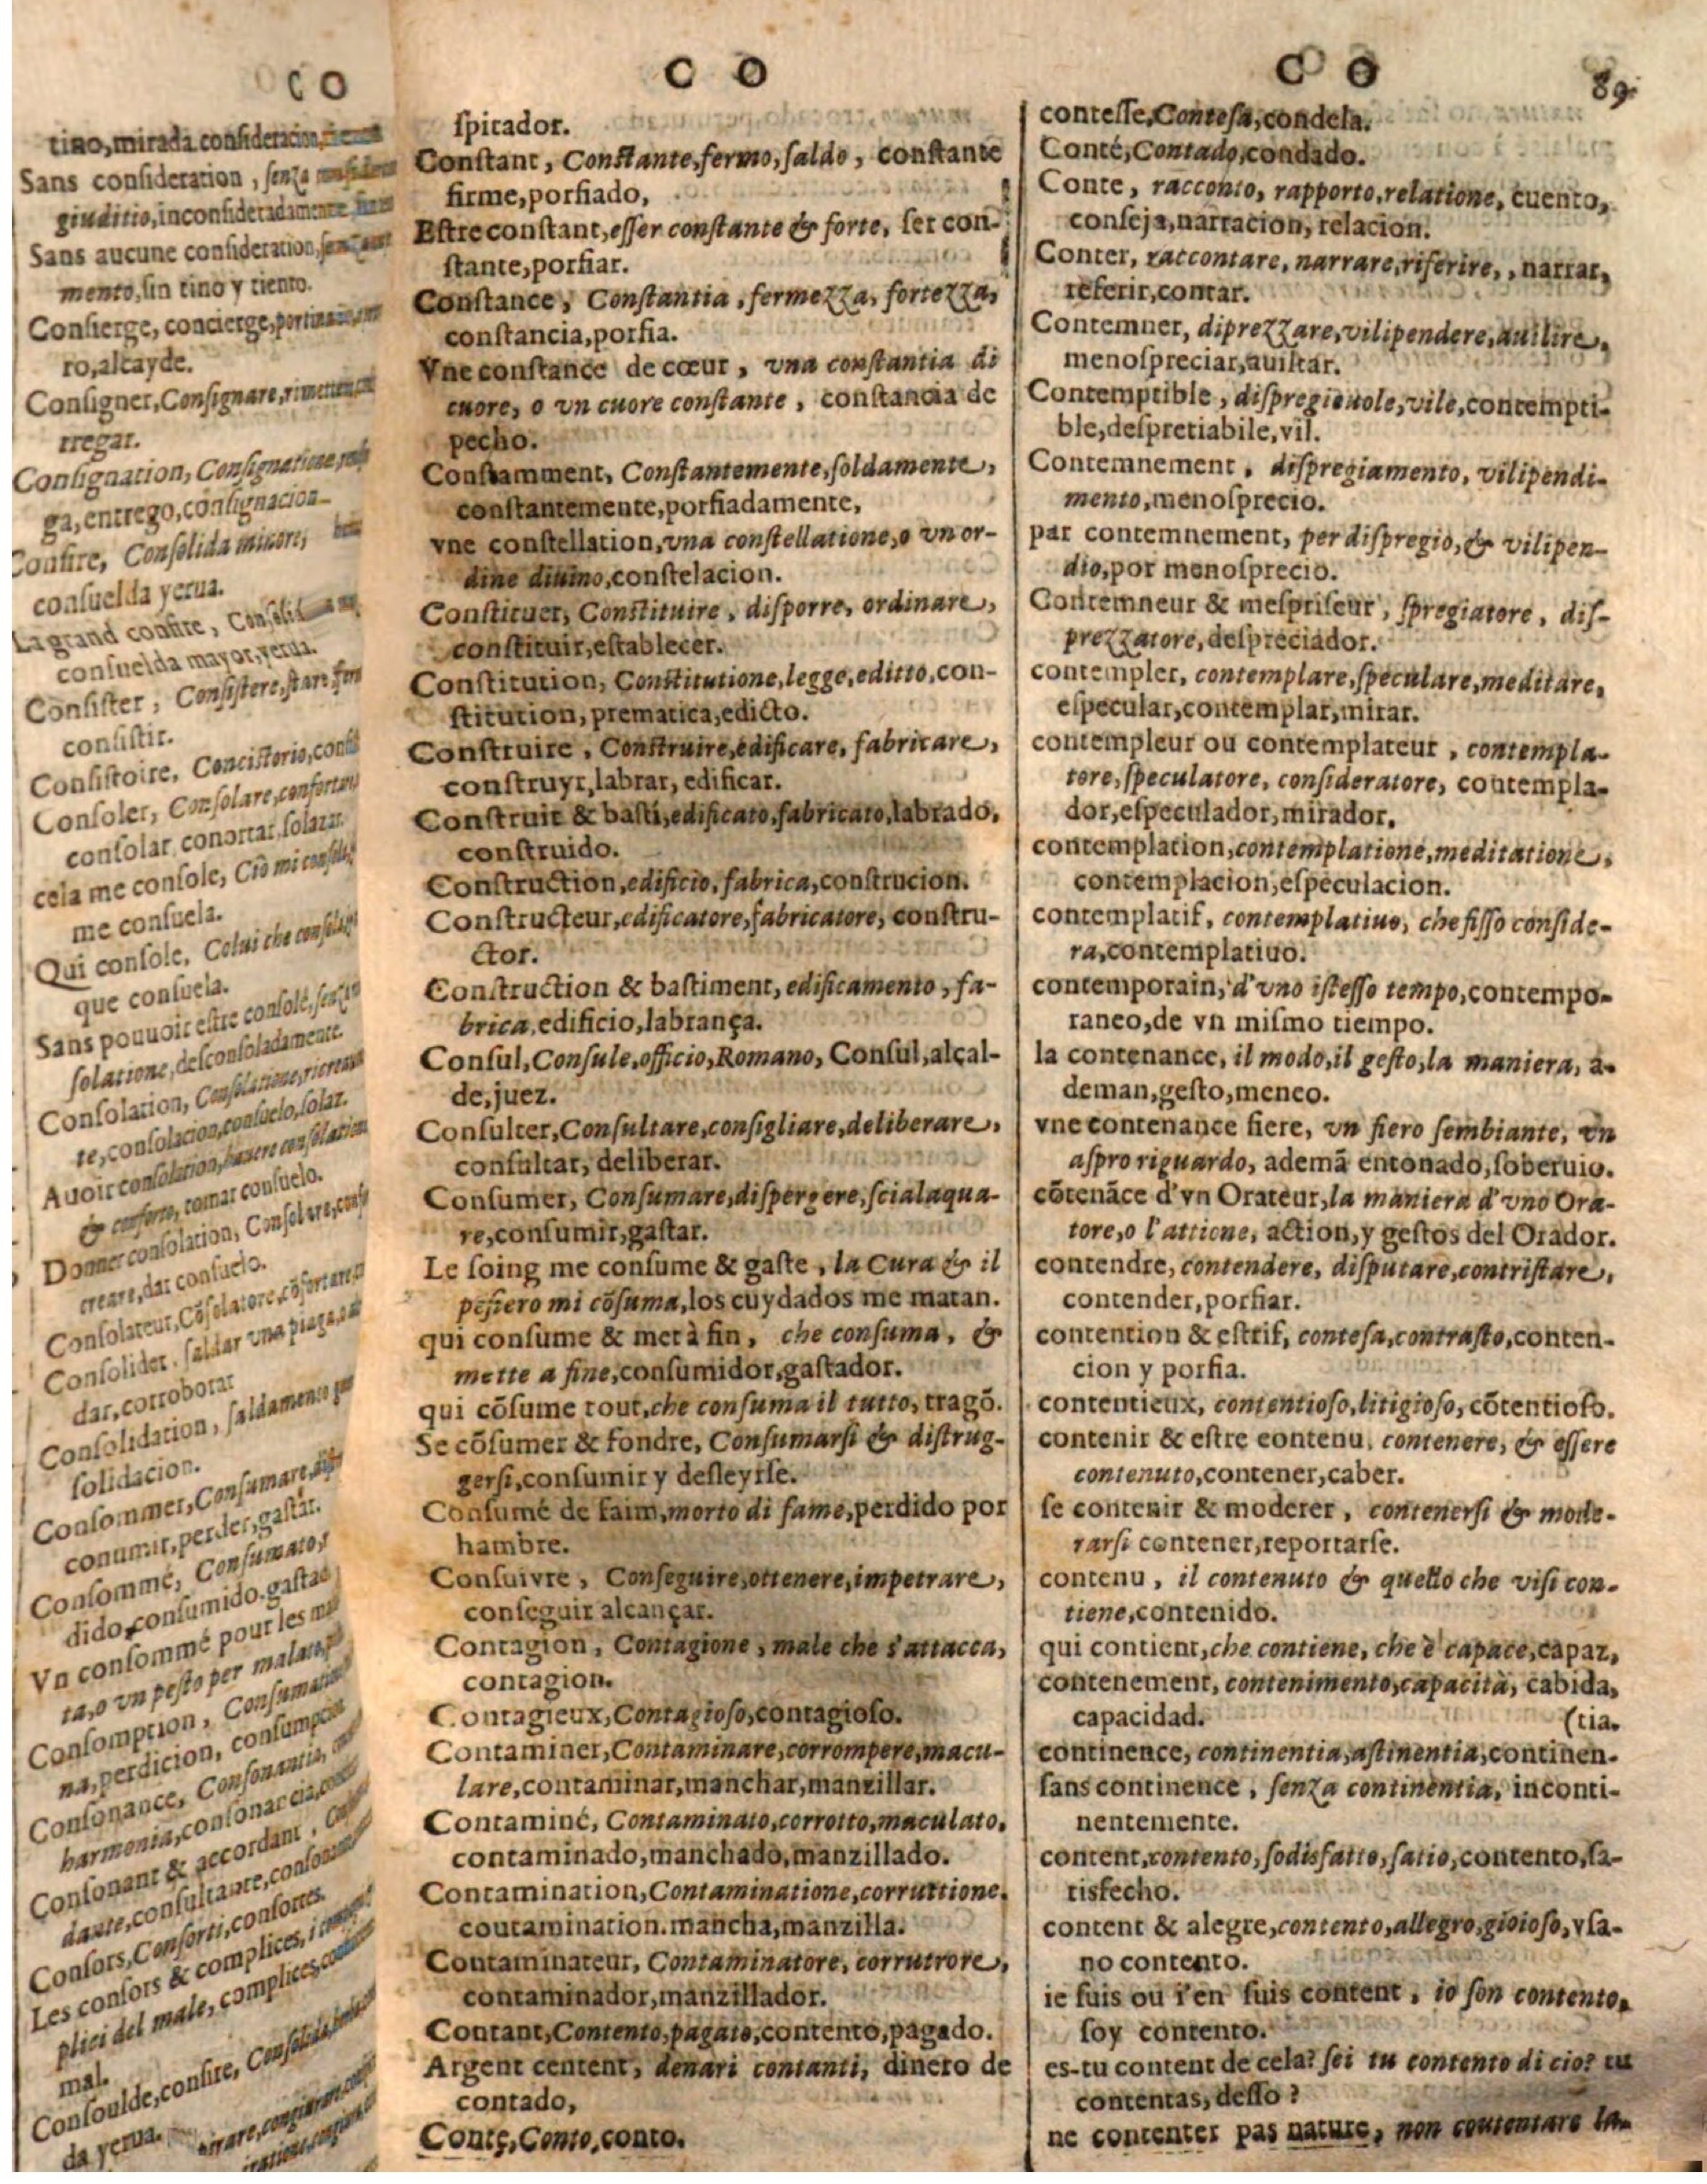 C O
tino, mirada consideracion,
Sans consideration, senza
giuditio, inconsideradamente
Sans aucune consideration,
mento, sin tino y tiento.
Consierge, concierge,
ro, alcayde.
Consigner, Consignare,
tregar.
Consignation, Consignatione
ga, entrego, consignacion
Consire, Consolida minore,
consuelda yerua.
La grand consire,
consuelda mayor, yerua.
Consister, Consistere, stare
consistir.
Consistoire, Concistorio,
Consoler, Consolare,
consolar conortar, solazar.
cela me console, Ciò mi
me consuela.
Qui console, Celui che
que consuela.
Sans pouuoir estre consolé,
solatione, desconsoladamente.
Consolation, Consolatione,
te, consolacion, consuelo, solaz.
Auoir consolation, hauere consolation
& conforto, tomar consuelo.
Donner consolation, Consolare,
creare, dar consuelo.
Consolateur, Cõsolatore,
Consolider, saldar vna piaga,
dar, corroborar
Consolidation, saldamento
solidacion.
Consommer, Consumare,
conumir, perder, gastar.
Consommé, Consumato,
dido, consumido, gastar
Vn consommé pour les
ta, o vn pesto per malato,
Consomption,
na, perdicion,
Consonance, Consonantia,
harmonia, consonancia,
Consonant & accordant,
dante, consultante,
Consors, Consorti, consortes.
Les consors & complices, i
plici del male, complices,
mal.
Consoulde, consire,
da yerua.
C O
spirador.
Constant, Constante, fermo, saldo, constante
firme, porfiado,
Estre constant, esser constante & forte, ser con-
stante, porfiar.
Constance, Constantia, fermezza, fortezza,
constancia, porfia.
Vne constance de cœur, vna constantia di
cuore, o vn cuore constante, constancia de
pecho.
Constamment, Constantemente, soldamente,
constantemente, porfiadamente,
vne constellation, vna constellatione, o vn or-
dine diuino, constelacion.
Constituer, Constituire, disporre, ordinare,
constituir, establecer.
Constitution, Constitutione, legge, editto, con-
stitution, prematica, edicto.
Construire, Construire, edificare, fabricare,
construyr, labrar, edificar.
Construit & basti, edificato, fabricato, labrado,
construido.
Construction, edificio, fabrica, construcion.
Constructeur, edificatore, fabricatore, constru-
ctor.
Construction & bastiment, edificamento, fa-
brica, edificio, labrança.
Consul, Consule, officio, Romano, Consul, alçal-
de, juez.
Consulter, Consultare, consigliare, deliberare,
consultar, deliberar.
Consumer, Consumare, dispergere, scialaqua-
re, consumir, gastar.
Le soing me consume & gaste, la Cura & il
pẽsiero mi cõsuma, los cuydados me matan.
qui consume & met à fin, che consuma, &
mette a fine, consumidor, gastador.
qui cõsume tout, che consuma il tutto, tragõ.
Se cõsumer & fondre, Consumarsi & distrug-
gersi, consumir y desleyrse.
Consumé de faim, morto di fame, perdido por
hambre.
Consuivre, Conseguire, ottenere, impetrare,
conseguir alcançar.
Contagion, Contagione, male che s'attacca,
contagion.
Contagieux, Contagioso, contagioso.
Contaminer, Contaminare, corrompere, macu-
lare, contaminar, manchar, manzillar.
Contaminé, Contaminato, corrotto, maculato,
contaminado, manchado, manzillado.
Contamination, Contaminatione, corruttione,
coutamination. mancha, manzilla.
Contaminateur, Contaminatore, corrutrore,
contaminador, manzillador.
Contant, Contento, pagato, contento, pagado.
Argent centent, denari contanti, dinero de
contado,
Conte, Conto, conto.
C O 89
contesse, Contesa, condesa.
Conté, Contado, condado.
Conte, racconto, rapporto, relatione, cuento,
conseja, narracion, relacion.
Conter, raccontare, narrare, riferire, , narrar,
referir, contar.
Contemner, diprezzare, vilipendere, auilire,
menospreciar, auiltar.
Contemptible, dispregieuole, vile, contempti-
ble, despretiabile, vil.
Contemnement, dispregiamento, vilipendi-
mento, menosprecio.
par contemnement, per dispregio, & vilipen-
dio, por menosprecio.
Contemneur & mespriseur, spregiatore, dis-
prezzatore, despreciador.
contempler, contemplare, speculare, meditare,
especular, contemplar, mirar.
contempleur ou contemplateur, contempla-
tore, speculatore, consideratore, contempla-
dor, especulador, mirador.
contemplation, contemplatione, meditatione,
contemplacion, especulacion.
contemplatif, contemplatiuo, che fisso conside-
ra, contemplatiuo.
contemporain, d'vno istesso tempo, contempo-
raneo, de vn mismo tiempo.
la contenance, il modo, il gesto, la maniera, a-
deman, gesto, meneo.
vne contenance fiere, vn fiero sembiante, vn
aspro riguardo, ademã entonado, soberuio.
cõtenãce d'vn Orateur, la maniera d'vno Ora-
tore, o l'attione, action, y gestos del Orador.
contendre, contendere, disputare, contristare,
contender, porfiar.
contention & estrif, contesa, contrasto, conten-
cion y porfia.
contentieux, contentioso, litigioso, cõtentioso.
contenir & estre contenu, contenere, & essere
contenuto, contener, caber.
se contenir & moderer, contenersi & mode-
rarsi contener, reportarse.
contenu, il contenuto & quello che visi con-
tiene, contenido.
qui contient, che contiene, che è capace, capaz,
contenement, contenimento, capacità, cabida,
capacidad. (tia.
continence, continentia, astinentia, continen-
sans continence, senza continentia, inconti-
nentemente.
content, contento, sodisfatto, satio, contento, sa-
tisfecho.
content & alegre, contento, allegro, gioioso, vfa-
no contento.
ie suis ou i'en suis content, io son contento,
soy contento.
es-tu content de cela? sei tu contento di cio? tu
contentas, desso?
ne contenter pas nature, non contentare la-